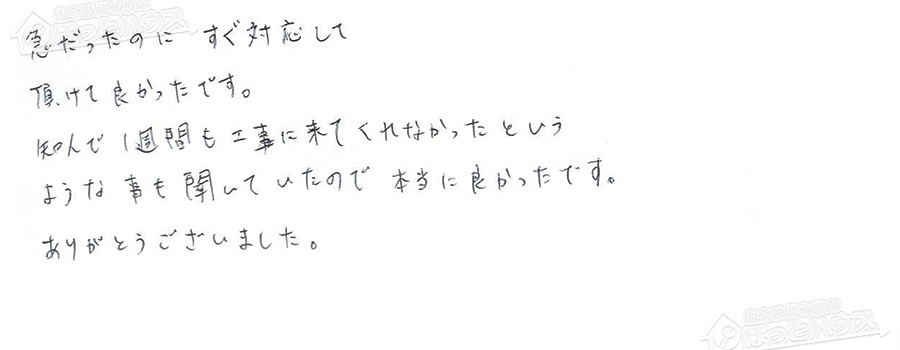 住宅設備専門店
ほっとハウス
急だったのに すぐ対応して
頂けて良かったです。
知人で1週間も工事に来てくれなかったという
ような事も聞いていたので 本当に良かったです。
ありがとうございました。
住宅設備専門店
ほっとハウス